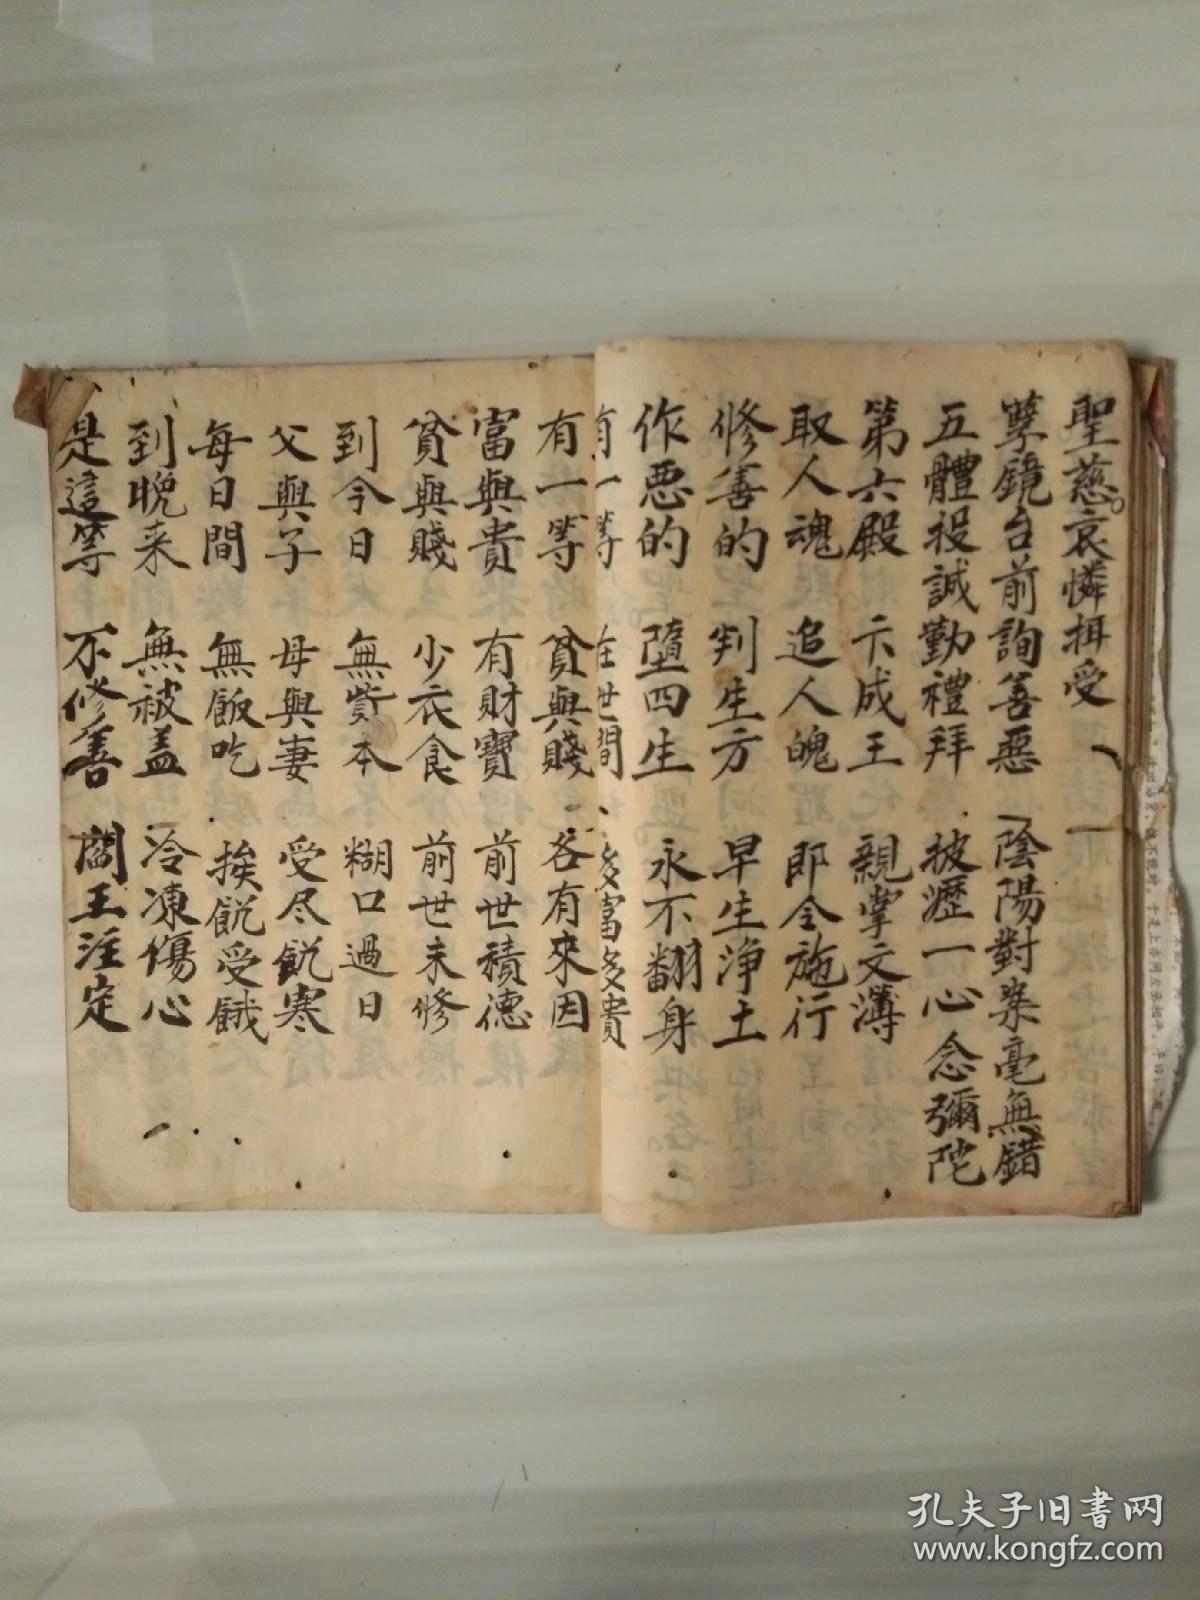 聖慈。哀憐攝受
孽鏡台前詢善惡 陰陽對案毫無錯
五體投誠勤禮拜 披瀝一心念彌陀
第六殿 卞成王 親掌文簿
取人魂 追人魄 即令施行
修善的 判生方 早生浄土
作悪的 墮四生 永不翻身
有一等 在世間 多富多貴
有一等 貧與賤 各有來因
富與貴 有財寶 前世積德
貧與賤 少衣食 前世未修
到今日 無貲本 糊口過日
父與子 母與妻 受尽飢寒
每日間 無飯吃 挨飢受餓
到晚来 無被盖 冷凍傷心
是這等 不修善 閻王注定
孔夫子旧书网
www.kongfz.com